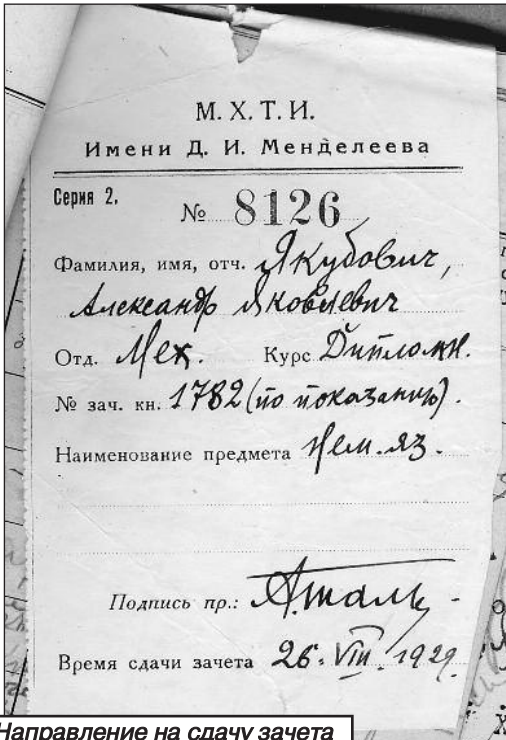 М. Х. Т. И.
Имени Д. И. Менделеева
Серия 2.
№ 8126
Фамилия, имя, отч. Якубович,
Александр Яковлевич
Отд. Мех. Курс Дипломн.
№ зач. кн. 1782 (по показанию).
Наименование предмета Нем. яз.
Подпись пр.:
Время сдачи зачета 26. VIII. 1929.
Направление на сдачу зачета